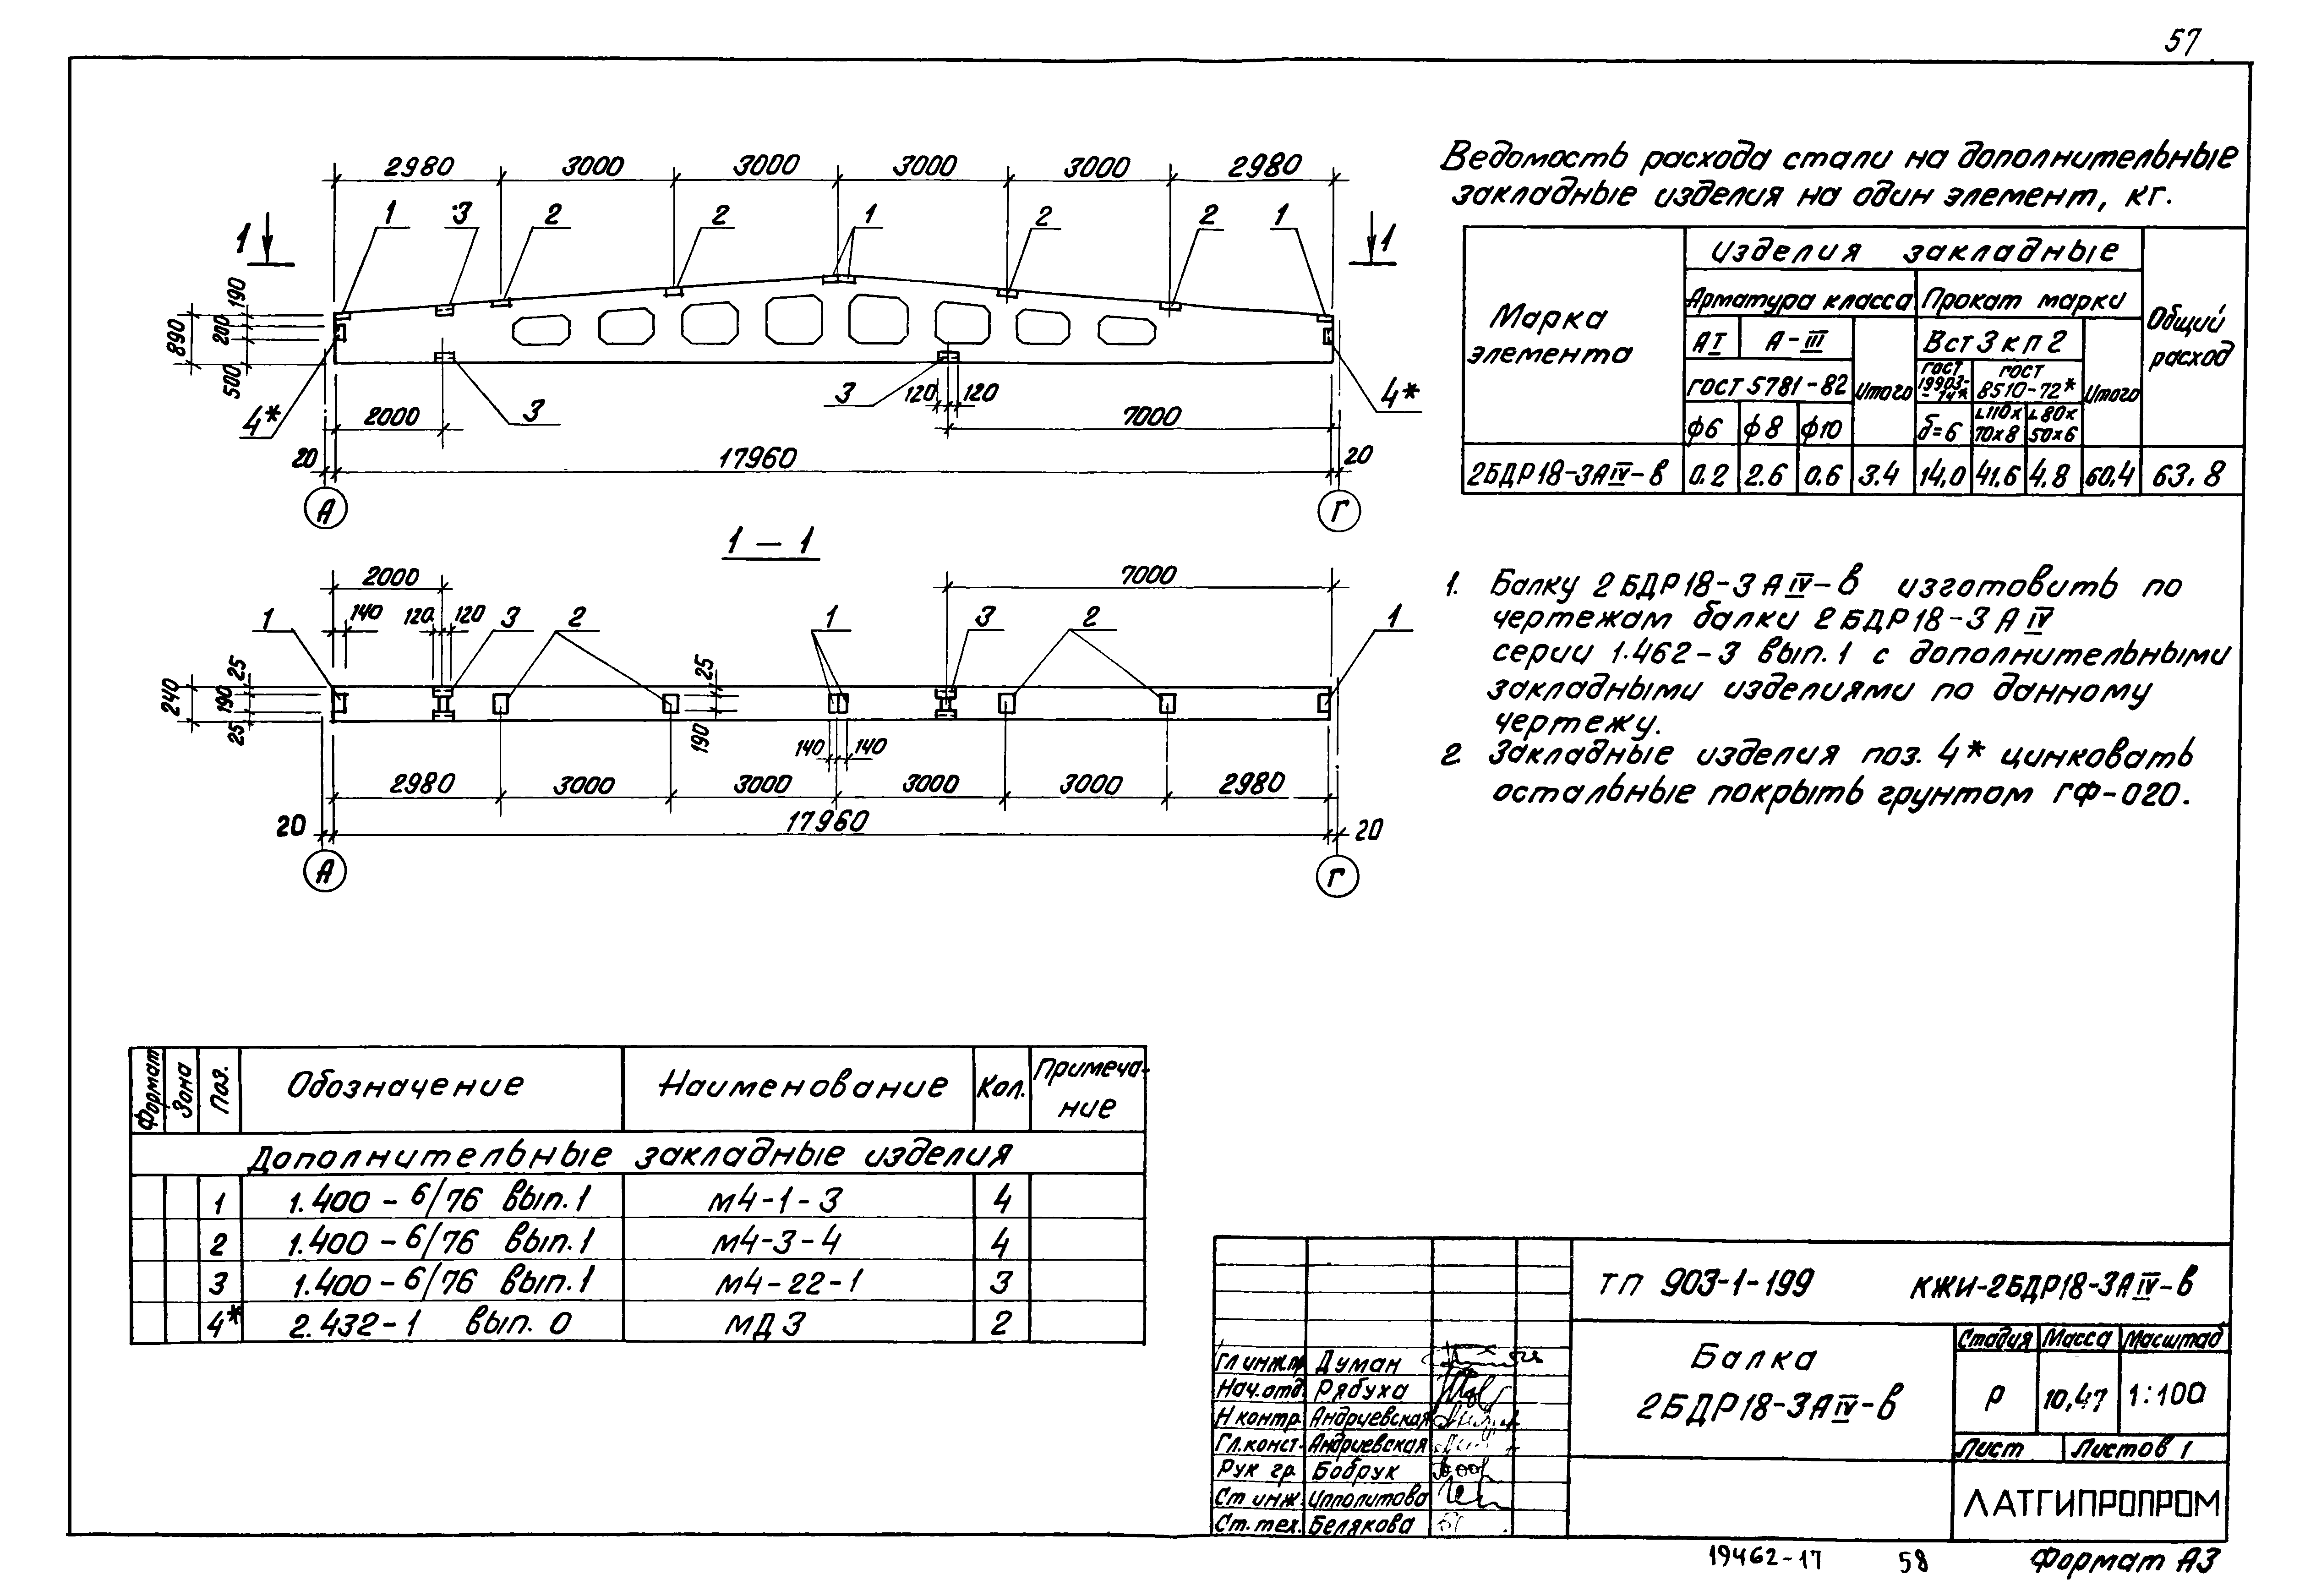 57
2980 3000 3000 3000 3000 2980
1 3 2 2 1 2 2 1
1 1
190
200
890
500
4* 3 3 120 120 4*
2000 7000
20 17960 20
А Г
1 – 1
2000 7000
1 140 120 120 3 2 1 3 2 1
25
190
240
25
25
190
140 140
2980 3000 3000 3000 3000 2980
20 17960 20
А Г
Ведомость расхода стали на дополнительные
закладные изделия на один элемент, кг.
Марка элемента
Изделия закладные
Общий расход
Арматура класса
Прокат марки
АI А-III
Итого
Вст3кп2
Итого
ГОСТ 5781-82
ГОСТ 19903-74*
ГОСТ 8510-72*
ф6 ф8 ф10 δ=6 ∟110х70х8 ∟80х50х6
2БДР18-3АIV-в 0.2 2.6 0.6 3.4 14,0 41.6 4.8 60.4 63.8
1. Балку 2БДР18-3АIV-в изготовить по
чертежам балки 2БДР18-3АIV
серии 1.462-3 вып.1 с дополнительными
закладными изделиями по данному
чертежу.
2 Закладные изделия поз. 4* цинковать
остальные покрыть грунтом ГФ-020.
Формат Зона Поз. Обозначение Наименование Кол. Примеча-
ние
Дополнительные закладные изделия
1 1.400-6/76 вып.1 М4-1-3 4
2 1.400-6/76 вып.1 М4-3-4 4
3 1.400-6/76 вып.1 М4-22-1 3
4* 2.432-1 вып. 0 МД3 2
ТП 903-1-199 КЖИ-2БДР18-3АIV-в
Балка
2БДР18-3АIV-в
Стадия Масса Масштаб
Р 10,47 1:100
Лист Листов 1
ЛАТГИПРОПРОМ
Гл инж.п Думан
Нач.отд. Рябуха
Н контр. Андриевская
Гл.конст. Андриевская
Рук гр. Бобрук
Ст инж. Ипполитова
Ст.тех. Белякова
19462-17 58 Формат А3